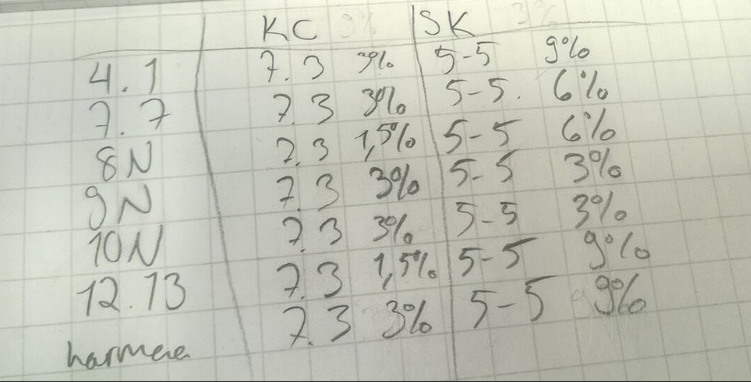 KC SK
4.1 7.3 3% 5-5 9%
7.7 7.3 3% 5-5. 6%
8N 7.3 1,5% 5-5 6%
9N 7.3 3% 5-5 3%
10N 7.3 3% 5-5 3%
12.13 7.3 1,5% 5-5 9%
7.3 3% 5-5 9%